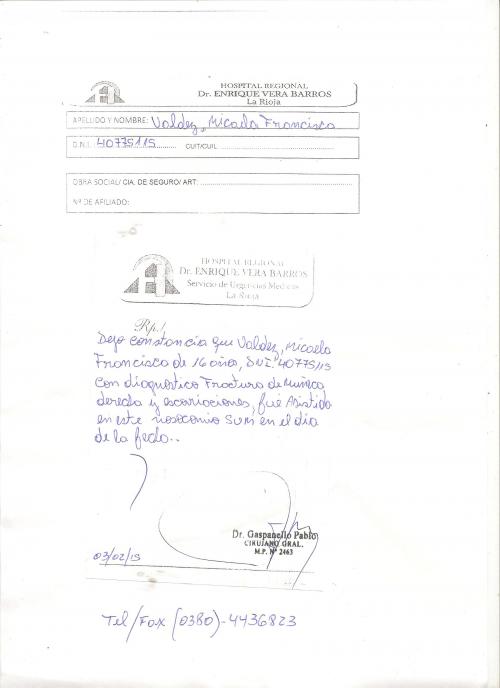 HOSPITAL REGIONAL
Dr. ENRIQUE VERA BARROS
La Rioja
APELLIDO Y NOMBRE: Valdez, Micaela Francisca
D.N.I.: 40775115 CUIT/CUIL
OBRA SOCIAL/ CIA. DE SEGURO/ ART:
Nº DE AFILIADO:
HOSPITAL REGIONAL
Dr. ENRIQUE VERA BARROS
Servicio de Urgencias Medicas
La Rioja
Rp./
Dejo constancia que Valdez, Micaela
Francisca de 16 años, DNI: 40775115
con diagnostico Fractura de Muñeca
derecha y escoriaciones, fué Asistida
en este nosocomio SUM en el dia
de la fecha..
Dr. Gaspanello Pablo
CIRUJANO GRAL.
M.P. Nº 2463
03/02/15
Tel/Fax (0380)-4436823